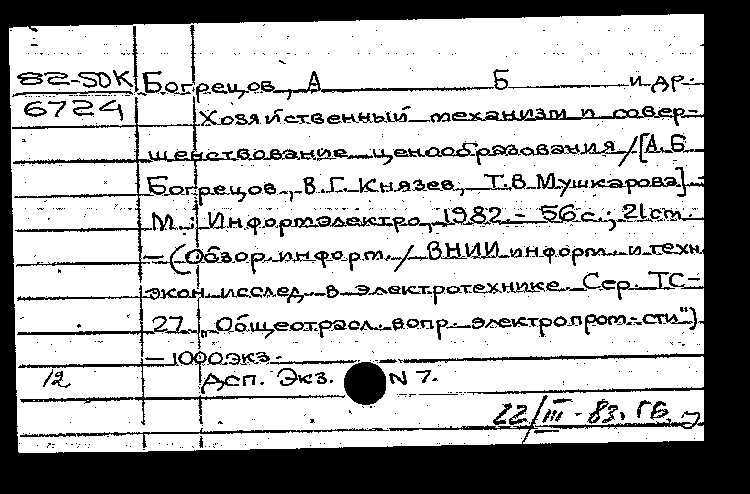 82-SDK Богрецов, А Б и др.
6724 Хозяйственный механизм и совер-
шенствование ценообразования /[А.Б
Богрецов, В.Г. Князев, Т.В Мушкарова] -
М.: Информэлектро, 1982.- 56с.; 21ст.
-(Обзор. информ. / ВНИИ информ. и техн
экон исслед. в электротехнике. Сер. ТС-
27 "Общеотрасл. вопр. электропром-сти")
-1000экз.
12 ДСП. Экз. N 7.
22/III-83. ГБ.